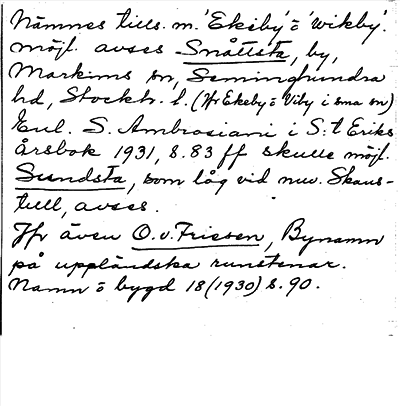 Nämnes tills. m. 'Ekeby' o 'Wikby'.
möjl. avses Snåttsta, by,
Markims sn, Seminghundra
hd, Stockh. l. (Jfr Ekeby o Viby i sma sn)
Enl. S. Ambrosiani i S:t Eriks
årsbok 1931, s. 83 ff skulle möjl.
Sundsta, som låg vid nuv. Skans-
tull, avses.
Jfr även O. v. Friesen, Bynamn
på uppländska runstenar.
Namn o bygd 18 (1930) s. 90.